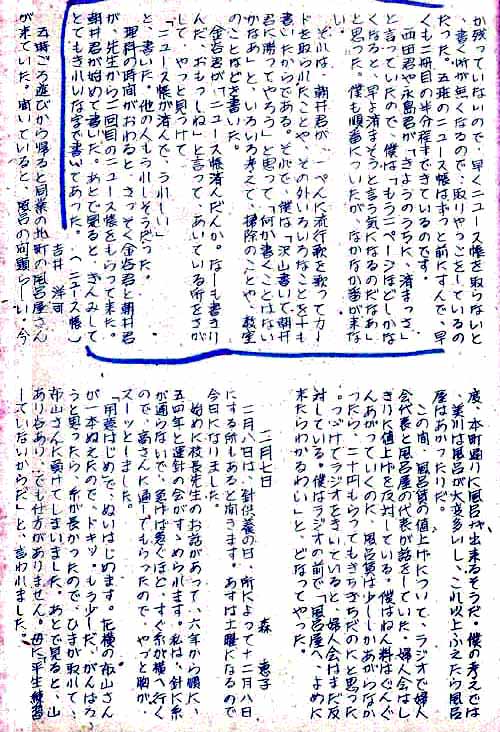 が残っていないので、早くニュース帳を取らないと
、書く所が無くなるので、取りやっこをしているの
だった。五班のニュース帳はずっと前にすんで、早
くも二冊目の半分程まできているのです。
西田君や永島君が「きようのうちに、済まっさ」
と言っていたので、僕は「もう二ページほどしかな
くなると、早よ済まそうと言う気になるのだなあ」
と思った。僕も順番についたが、なかなか番が来な
い。
それは、朝井君が、一ぺんに流行歌を歌ってカー
ドを取られたことや、その外いろいろなことを十も
書いたからである。それで、僕は「沢山書いて朝井
君に勝ってやろう」と思って「何か書くことはない
かなあ」と、いろいろ考えて、掃除のことや、教室
のことなどを書いた。
金谷君が「ニュース帳済んだんか。なーも書きり
んだ、おもっしぇ」と言って、あいている所をさが
して、やっと見つけて
「ニュース帳が済んで、うれしい」
と、書いた。他の人もうれしそうだった。
理科の時間がおわると、さっそく金谷君と朝井君
が、先生から二回目のニュース帳をもらって来た。
朝井君が始めて書いた。あとで見ると、ぎんみして
とてもきれいな字で書いてあった。(ニュース帳)
吉井 洋司
五時ごろ遊びから帰ると同業の北町の風呂屋さん
が来ていた。聞いていると、風呂の問題らしい。今
度、本町通りに出来るそうだ。僕の考えでは
、美川は風呂が大変多いし、これ以上ふえたら風呂
屋はあかったりだ。
この間、風呂賃の値上げについて、ラジオで婦人
会代表と風呂屋の代表が話をしていた。婦人会はし
きりに値上げを反対している。僕はねん料はぐんぐ
んあがっていくのに、風呂賃は少ししかあがらなか
ったら、二十円もらってもぎちぎちだのにと思った
。つづけてラジオをきいていると、婦人会はまだ反
対している。僕はラジオの前で「風呂屋へ、よめに
来たらわかるわい」と、どなってやった。
二月七日
森 恵子
二月八日は、針供養の日、所によって十二月八日
にする所もあると聞きます。あすは土曜になるので
今日になりました。
始めに校長先生のお話があって、六年から順に、
五四年と運針の会がすゝめられます。私は、針に糸
が通らないで、急げば急ぐほど、すぐ糸が横へ行く
ので、高さんに通してもらったので、やっと胸が、
スーッとしました。
「用意はじめ」で、ぬいはじめます。花横の布山さん
が一本ぬえたので、ドキッ。もう少しだ、がんばろ
うと思ったら、糸が長かったので、ひまが取れて、
布山さんに負けてしまいました。あとで見ると、山
ありらあり、でも仕方がありません。母に「平生練習
してしないからだ」と、言われました。